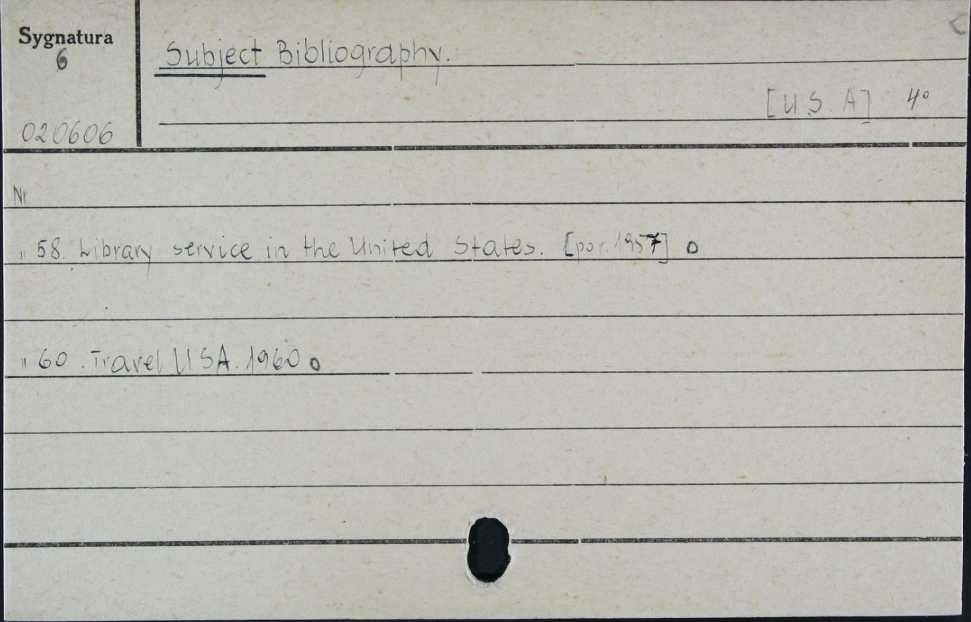 Sygnatura
6
020606
Subject Bibliography.
[U.S.A] 4°
Nr
" 58. Library service in the United States. [por. 1957] o
" 60. Travel USA. 1960 o